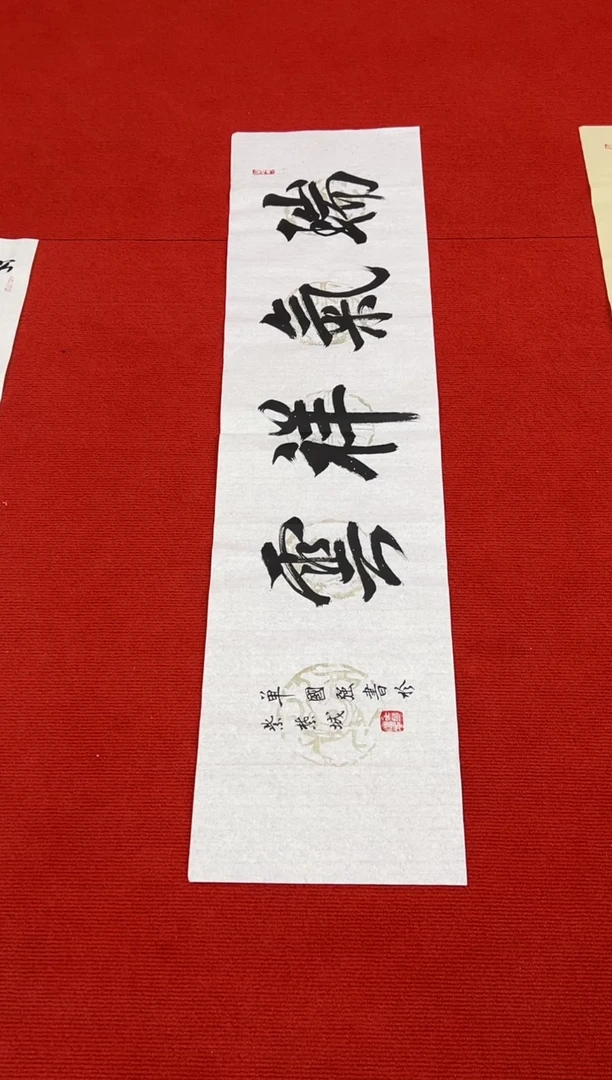 瑞氣祥雲
單國强書於
紫禁城